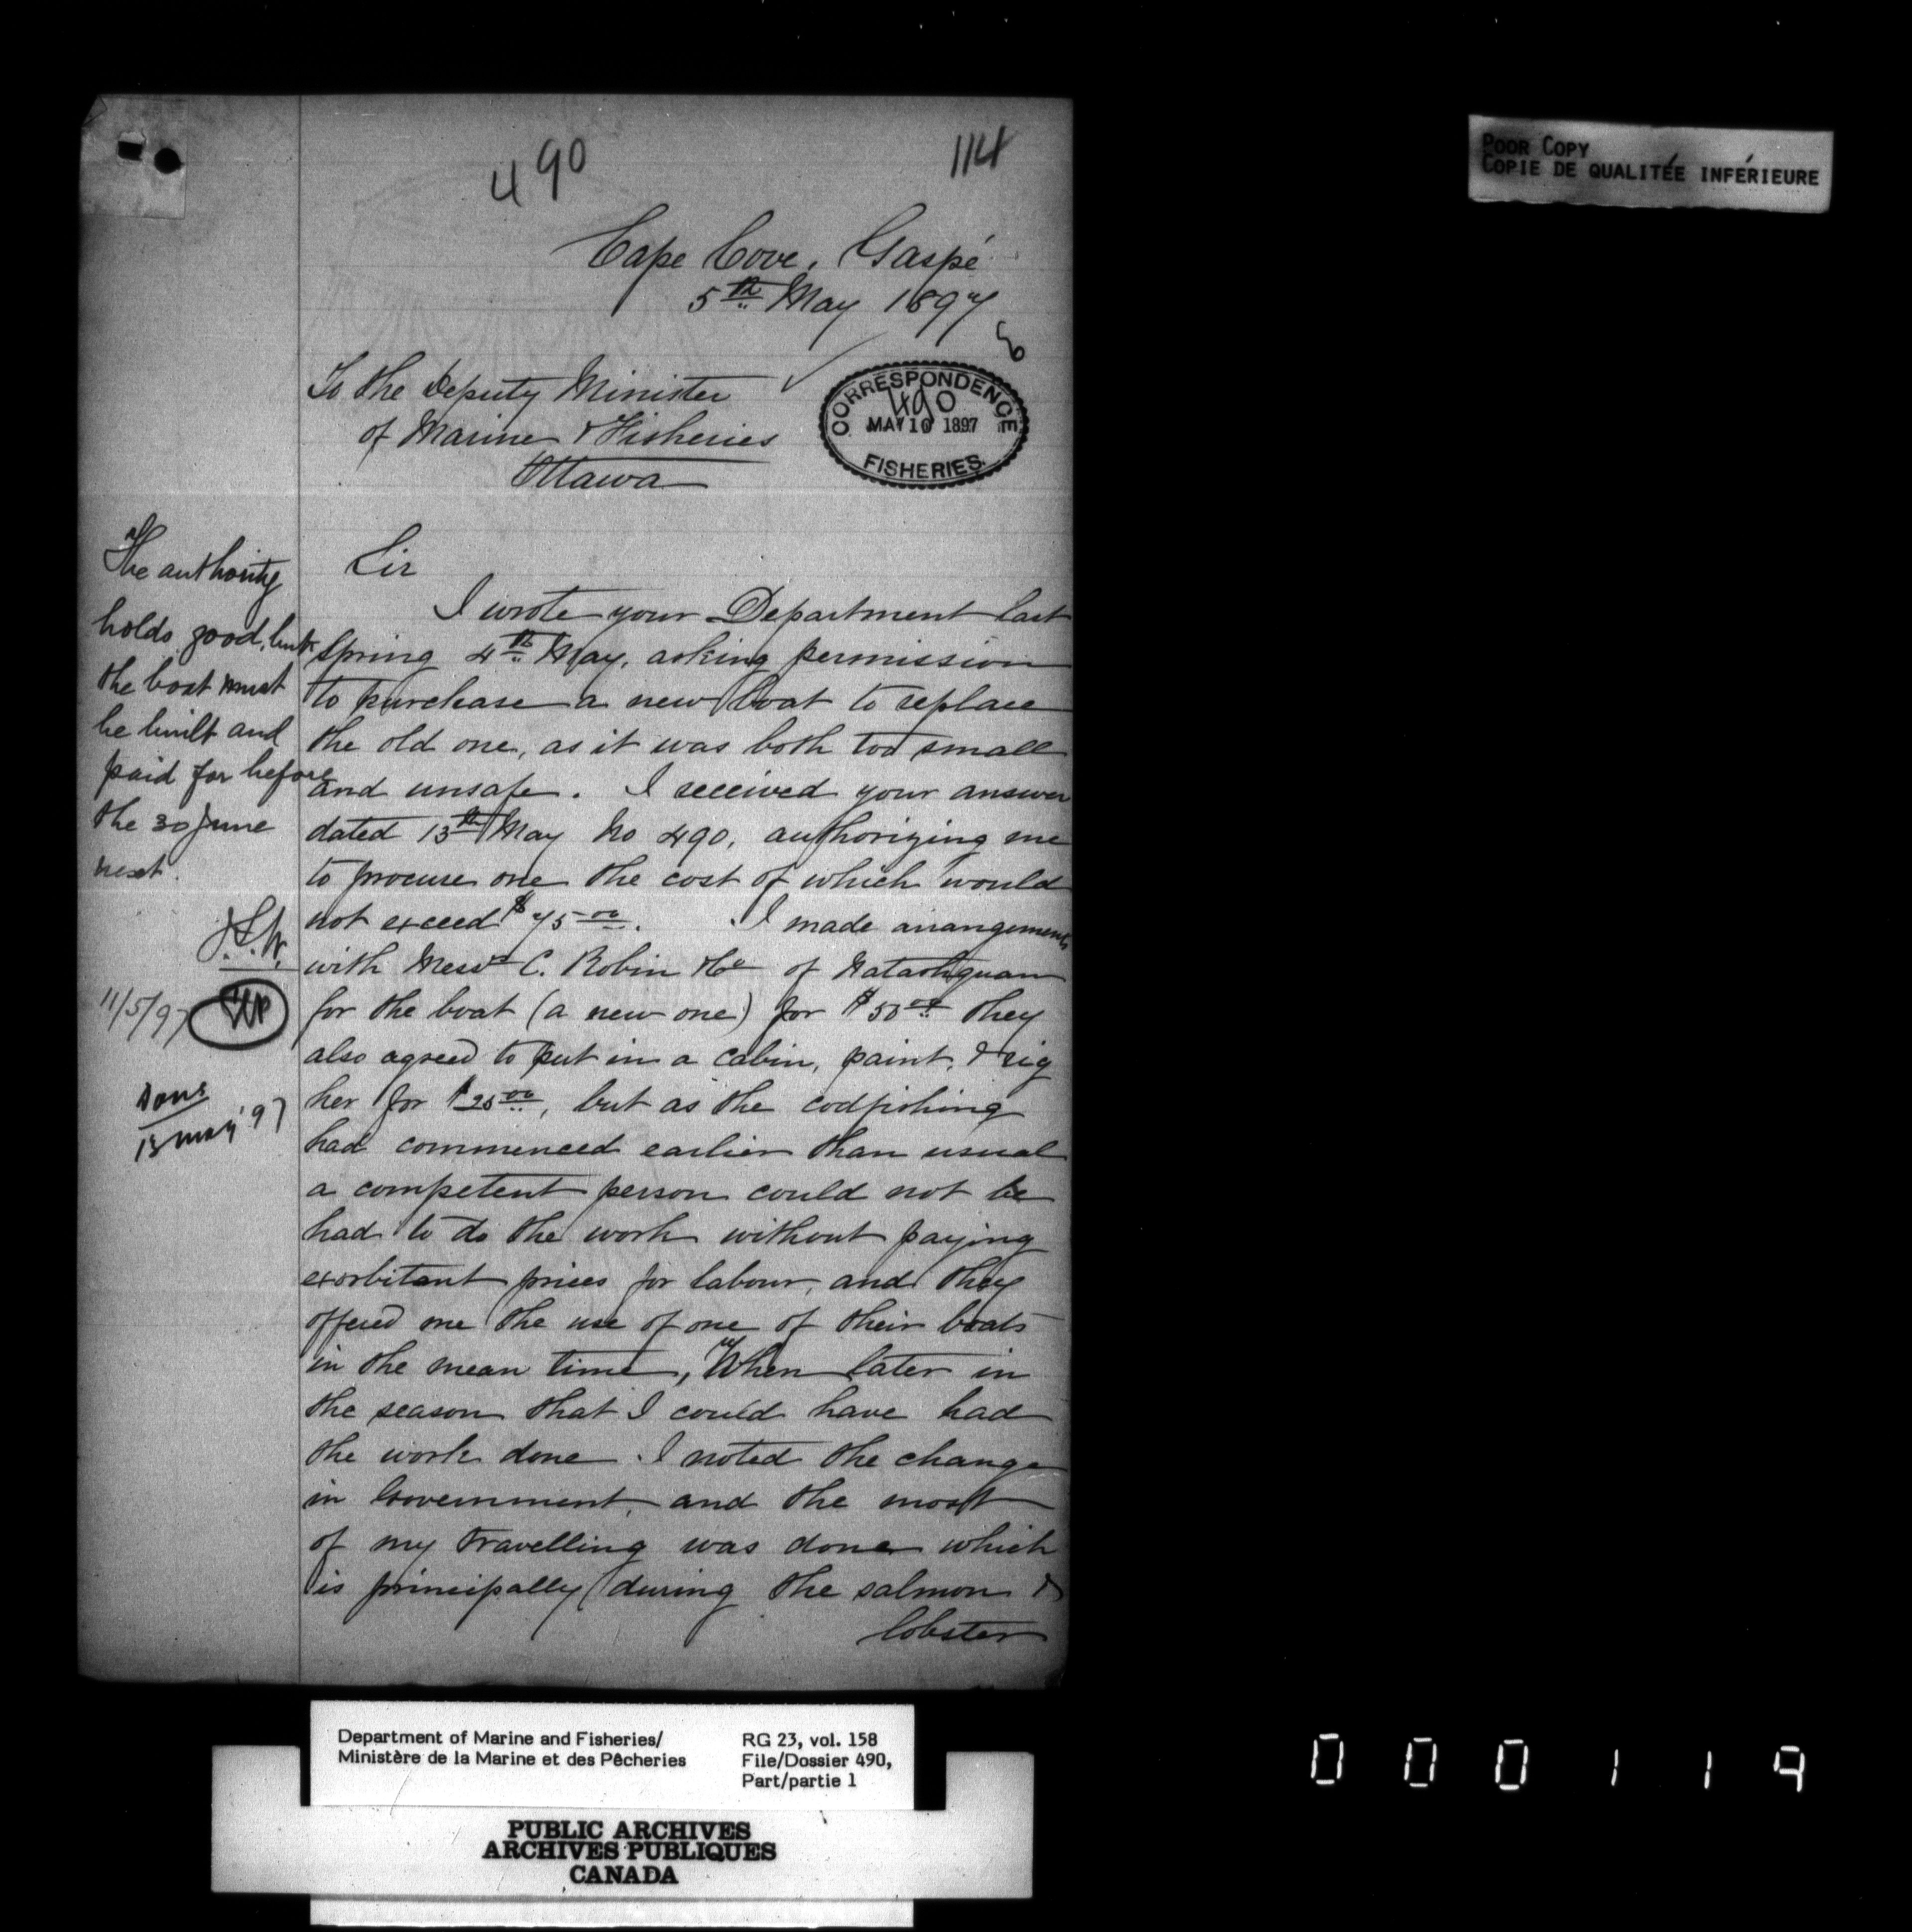 POOR COPY
COPIE DE QUALITÉE INFÉRIEURE
490
114
Cape Cove, Gaspé
5th May 1897
To the Deputy Minister
of Marine & Fisheries
Ottawa
CORRESPONDENCE
490
MAY 10 1897
FISHERIES.
The authority
holds good, but
the boat must
be built and
paid for before
the 30 June
next.
11/5/97
Done
13 May '97
Sir
I wrote your Department last
Spring 4th May, asking permission
to purchase a new boat to replace
the old one, as it was both too small
and unsafe. I received your answer
dated 13th May No 490, authorizing me
to procure one the cost of which would
not exceed $75.00. I made arrangements
with Messrs C. Robin & Co of Natashquan
for the boat (a new one) for $50.00 they
also agreed to put in a cabin, paint, & rig
her for $25.00, but as the codfishing
had commenced earlier than usual
a competent person could not be
had to do the work without paying
exorbitant prices for labour, and they
offered me the use of one of their boats
in the mean time, When later in
the season that I could have had
the work done. I noted the change
in Government, and the most
of my travelling was done which
is principally during the salmon &
lobster
Department of Marine and Fisheries/
Ministère de la Marine et des Pêcheries
RG 23, vol. 158
File/Dossier 490,
Part/partie 1
PUBLIC ARCHIVES
ARCHIVES PUBLIQUES
CANADA
000119